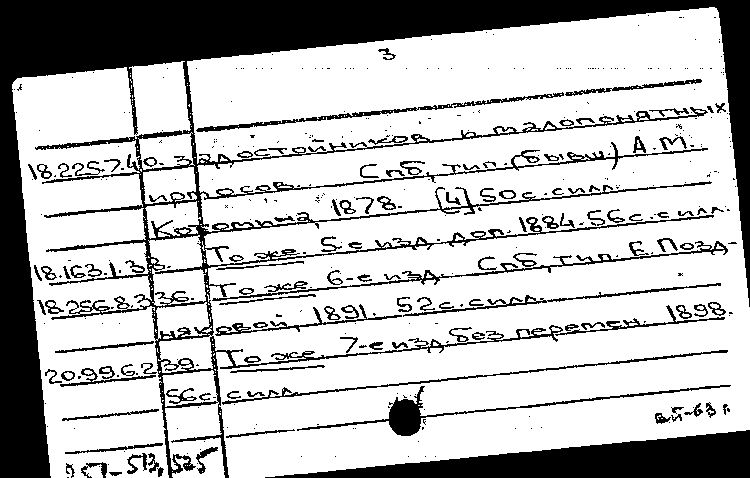 3
18.225.7.40. задостойников и малопонятных
ирмосов. Спб, тип. (бывш) А.М.
Котомина, 1878. [4], 50 с. с илл.
18.163.1.38. То же. 5-е изд. доп. 1884. 56 с. с илл.
18.256.8.336. То же. 6-е изд. Спб, тип. Е. Позд-
няковой, 1891. 52 с. с илл.
20.99.6.239. То же. 7-е изд. без перемен. 1898.
56 с. с илл.
513, 525